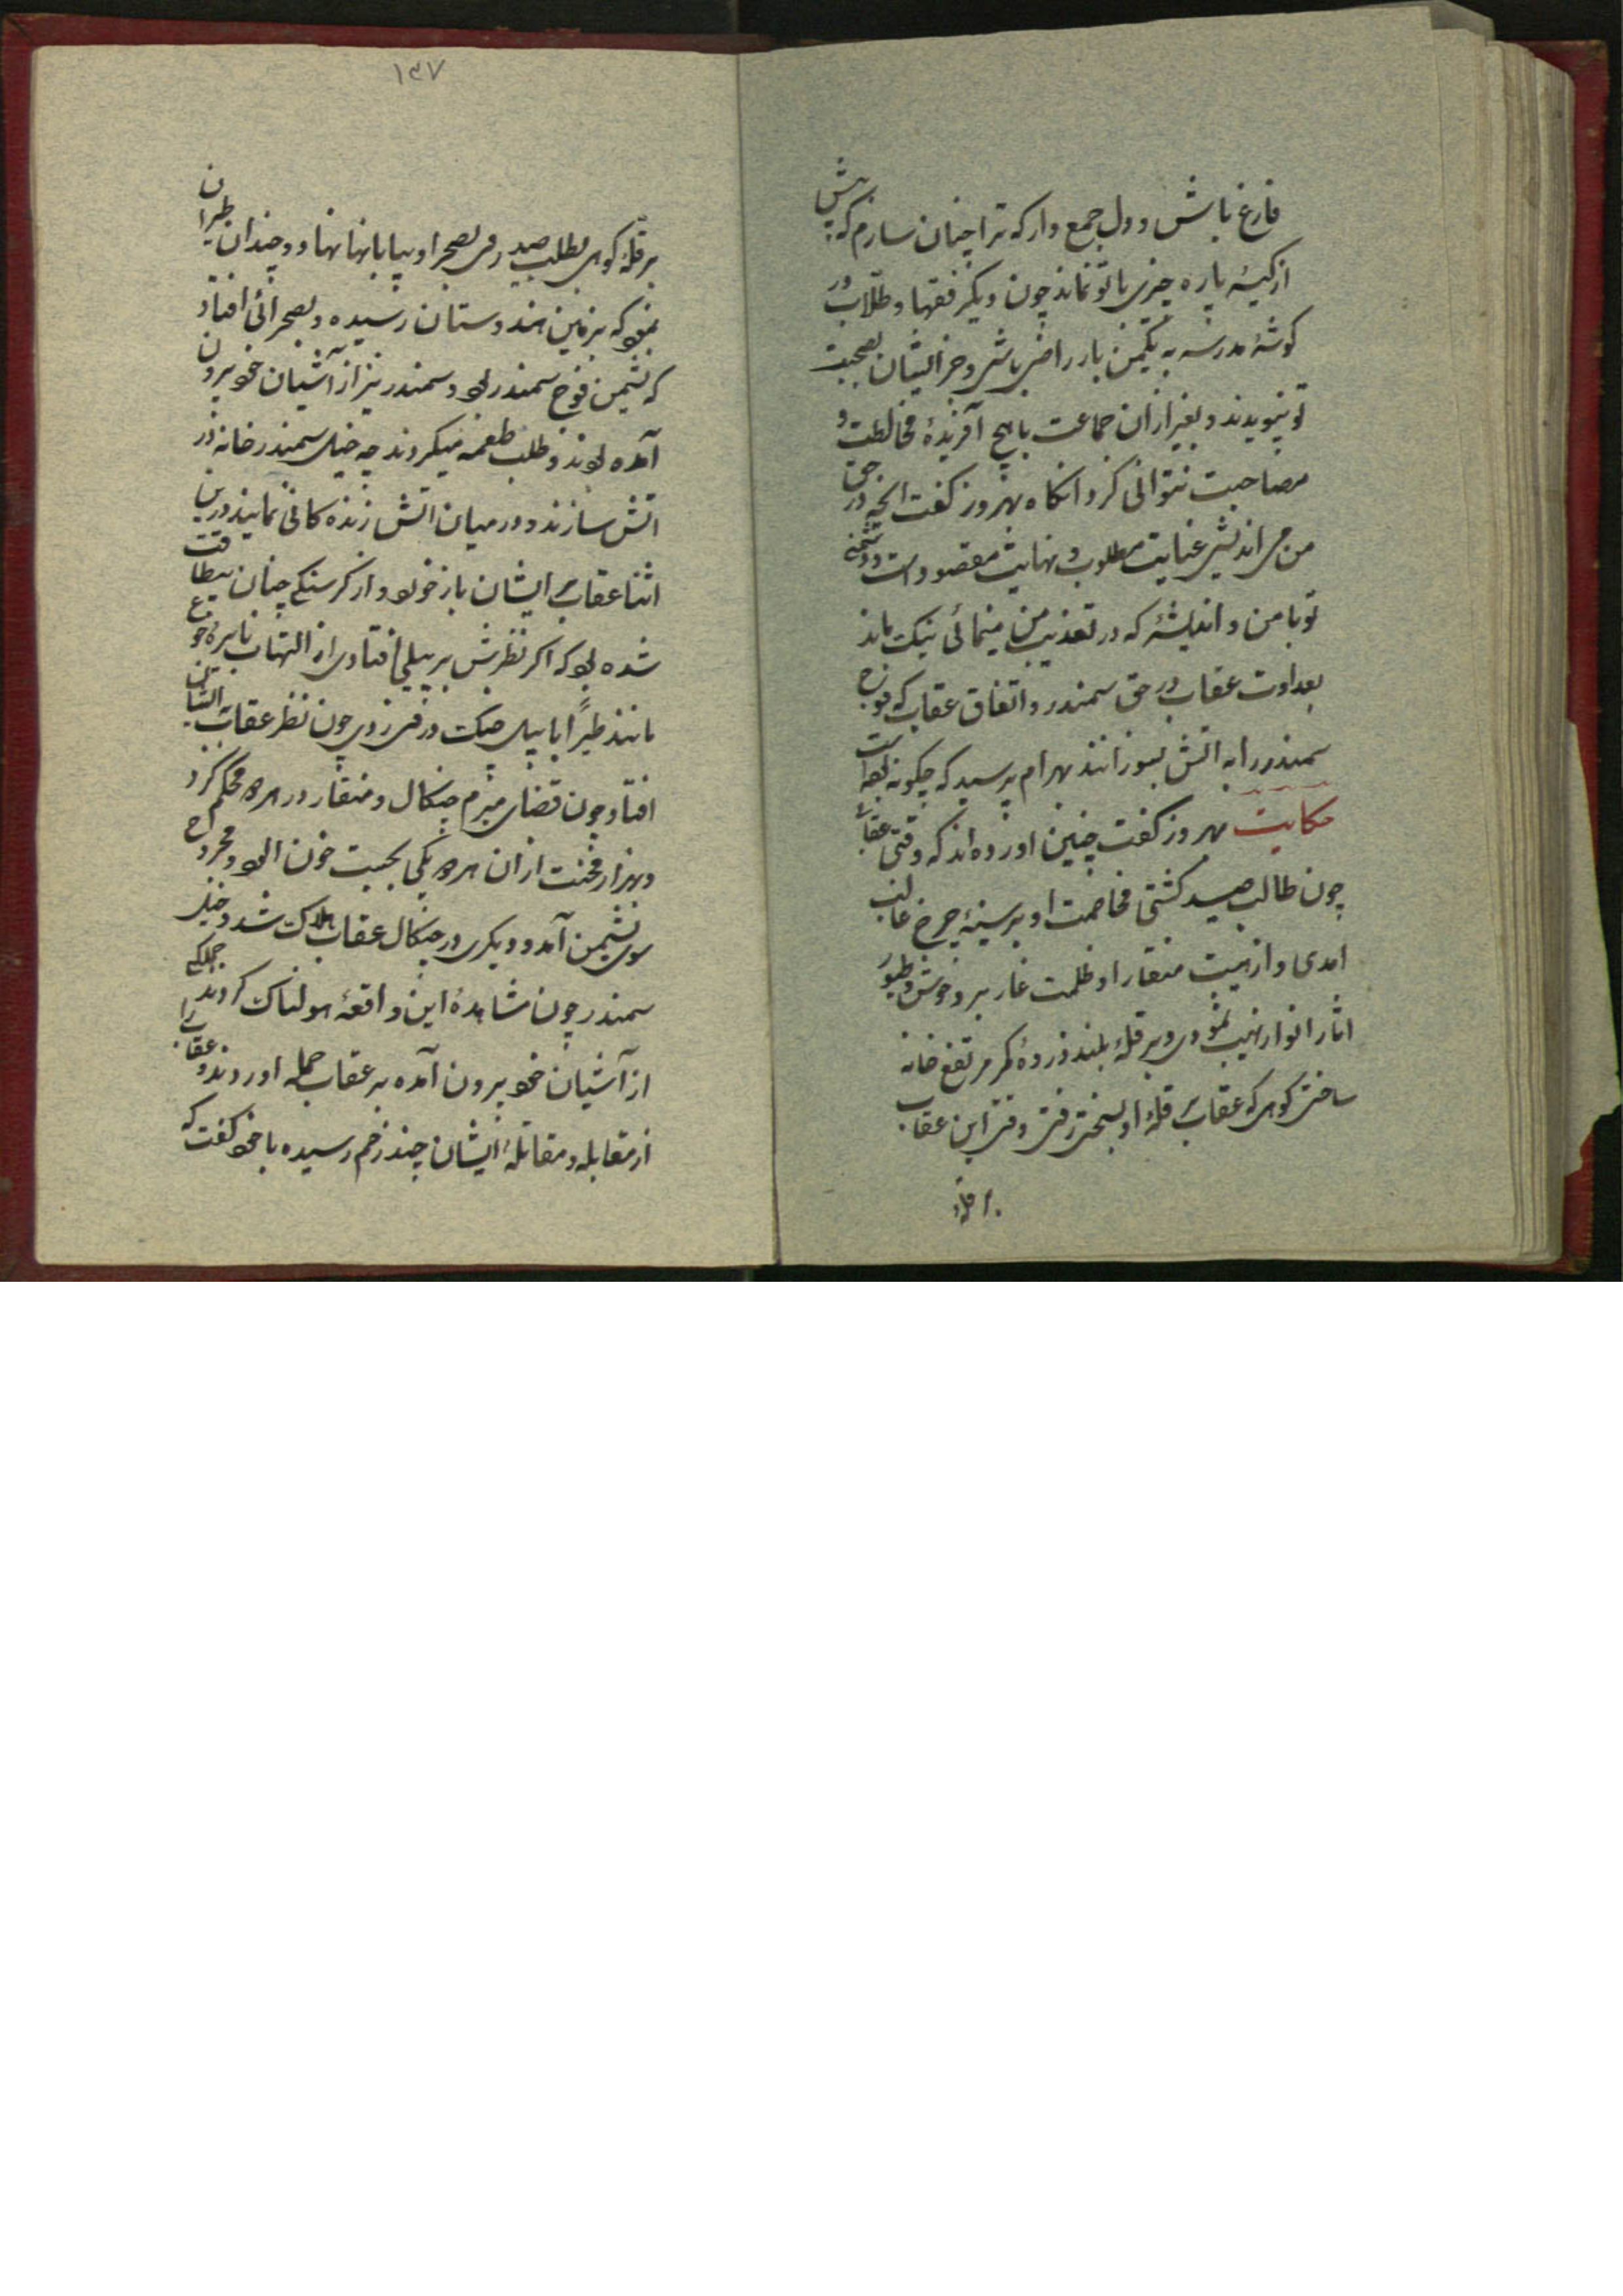 فارغ باش و دل جمع دار که ترا چنان سازم که بیش
از کیسهٔ پاره چیزی با تو نماند چون دیگر فقها و طلاب در
کوشهٔ مدرسه به یکمن بار راضی باشی و جز ایشان بصحبت
تو نپیوندند و بغیر از ان جماعت با هیچ آفریدهٔ مخالطت و
مصاحبت نتوانی کرد انکاه بهروز کفت انچه در حق
من می اندیشی غایت مطلوب و نهایت مقصود است و دشمنی
تو با من و اندیشهٔ که در تعذیب من مینمائی نیک ماند
بعداوت عقاب در حق سمندر و اتفاق عقاب که فوج
سمندر را به اتش بسوزانند بهرام پرسید که چکونه بوده است
حکایت بهروز کفت چنین اورده اند که وقتی عقابی
چون طالب صید کشتی مخاصمت او بر سینهٔ چرخ غالب
امدی و از هیبت منقار او ظلمت غار بر وحوش و طیور
اثار انوار نمودی و بر قلهٔ بلند و ذروهٔ کمر مرتفع خانه
ساختی کوهی که عقاب قلهٔ او بسختی رفتی وقتی این عقاب
بر قلهٔ
۱۳۷
بر قلهٔ کوهی بطلب صید رفی بصحرا و بیابانها نهاد و چندان طیران
نمود که بزمین هندوستان رسیده و بصحرائی افتاد
که نشیمن فوج سمندر بود و سمندر نیز از آشیان خود بیرون
آمده بودند و طلب طعمه میکردند چه خیل سمندر خانه در
اتش سازند و در میان اتش زنده کانی نمایند درین
اثنا عقاب بایشان باز خورد و از کرسنکی چنان بیطاقت
شده بود که اکر نظرش بر پیلی افتادی از التهاب نایرهٔ جوع
مانند طیراً ابابیل چنک در وی زدی چون نظر عقاب بر ایشان
افتاد چون قضای مبرم چنکال و منقار در هر دو محکم کرد
و بهزار محنت از ان هر دو یکی بجست خون الود و مجروح
سوی نشیمن آمد و دیکری در چنکال عقاب هلاک شد و خیل
سمندر چون مشاهدهٔ این واقعهٔ هولناک کردند جملکی
از آشیان خود بیرون آمده بر عقاب حمله اوردند و عقاب را
از مقابله و مقاتلهٔ ایشان چند زخم رسیده با خود کفت که